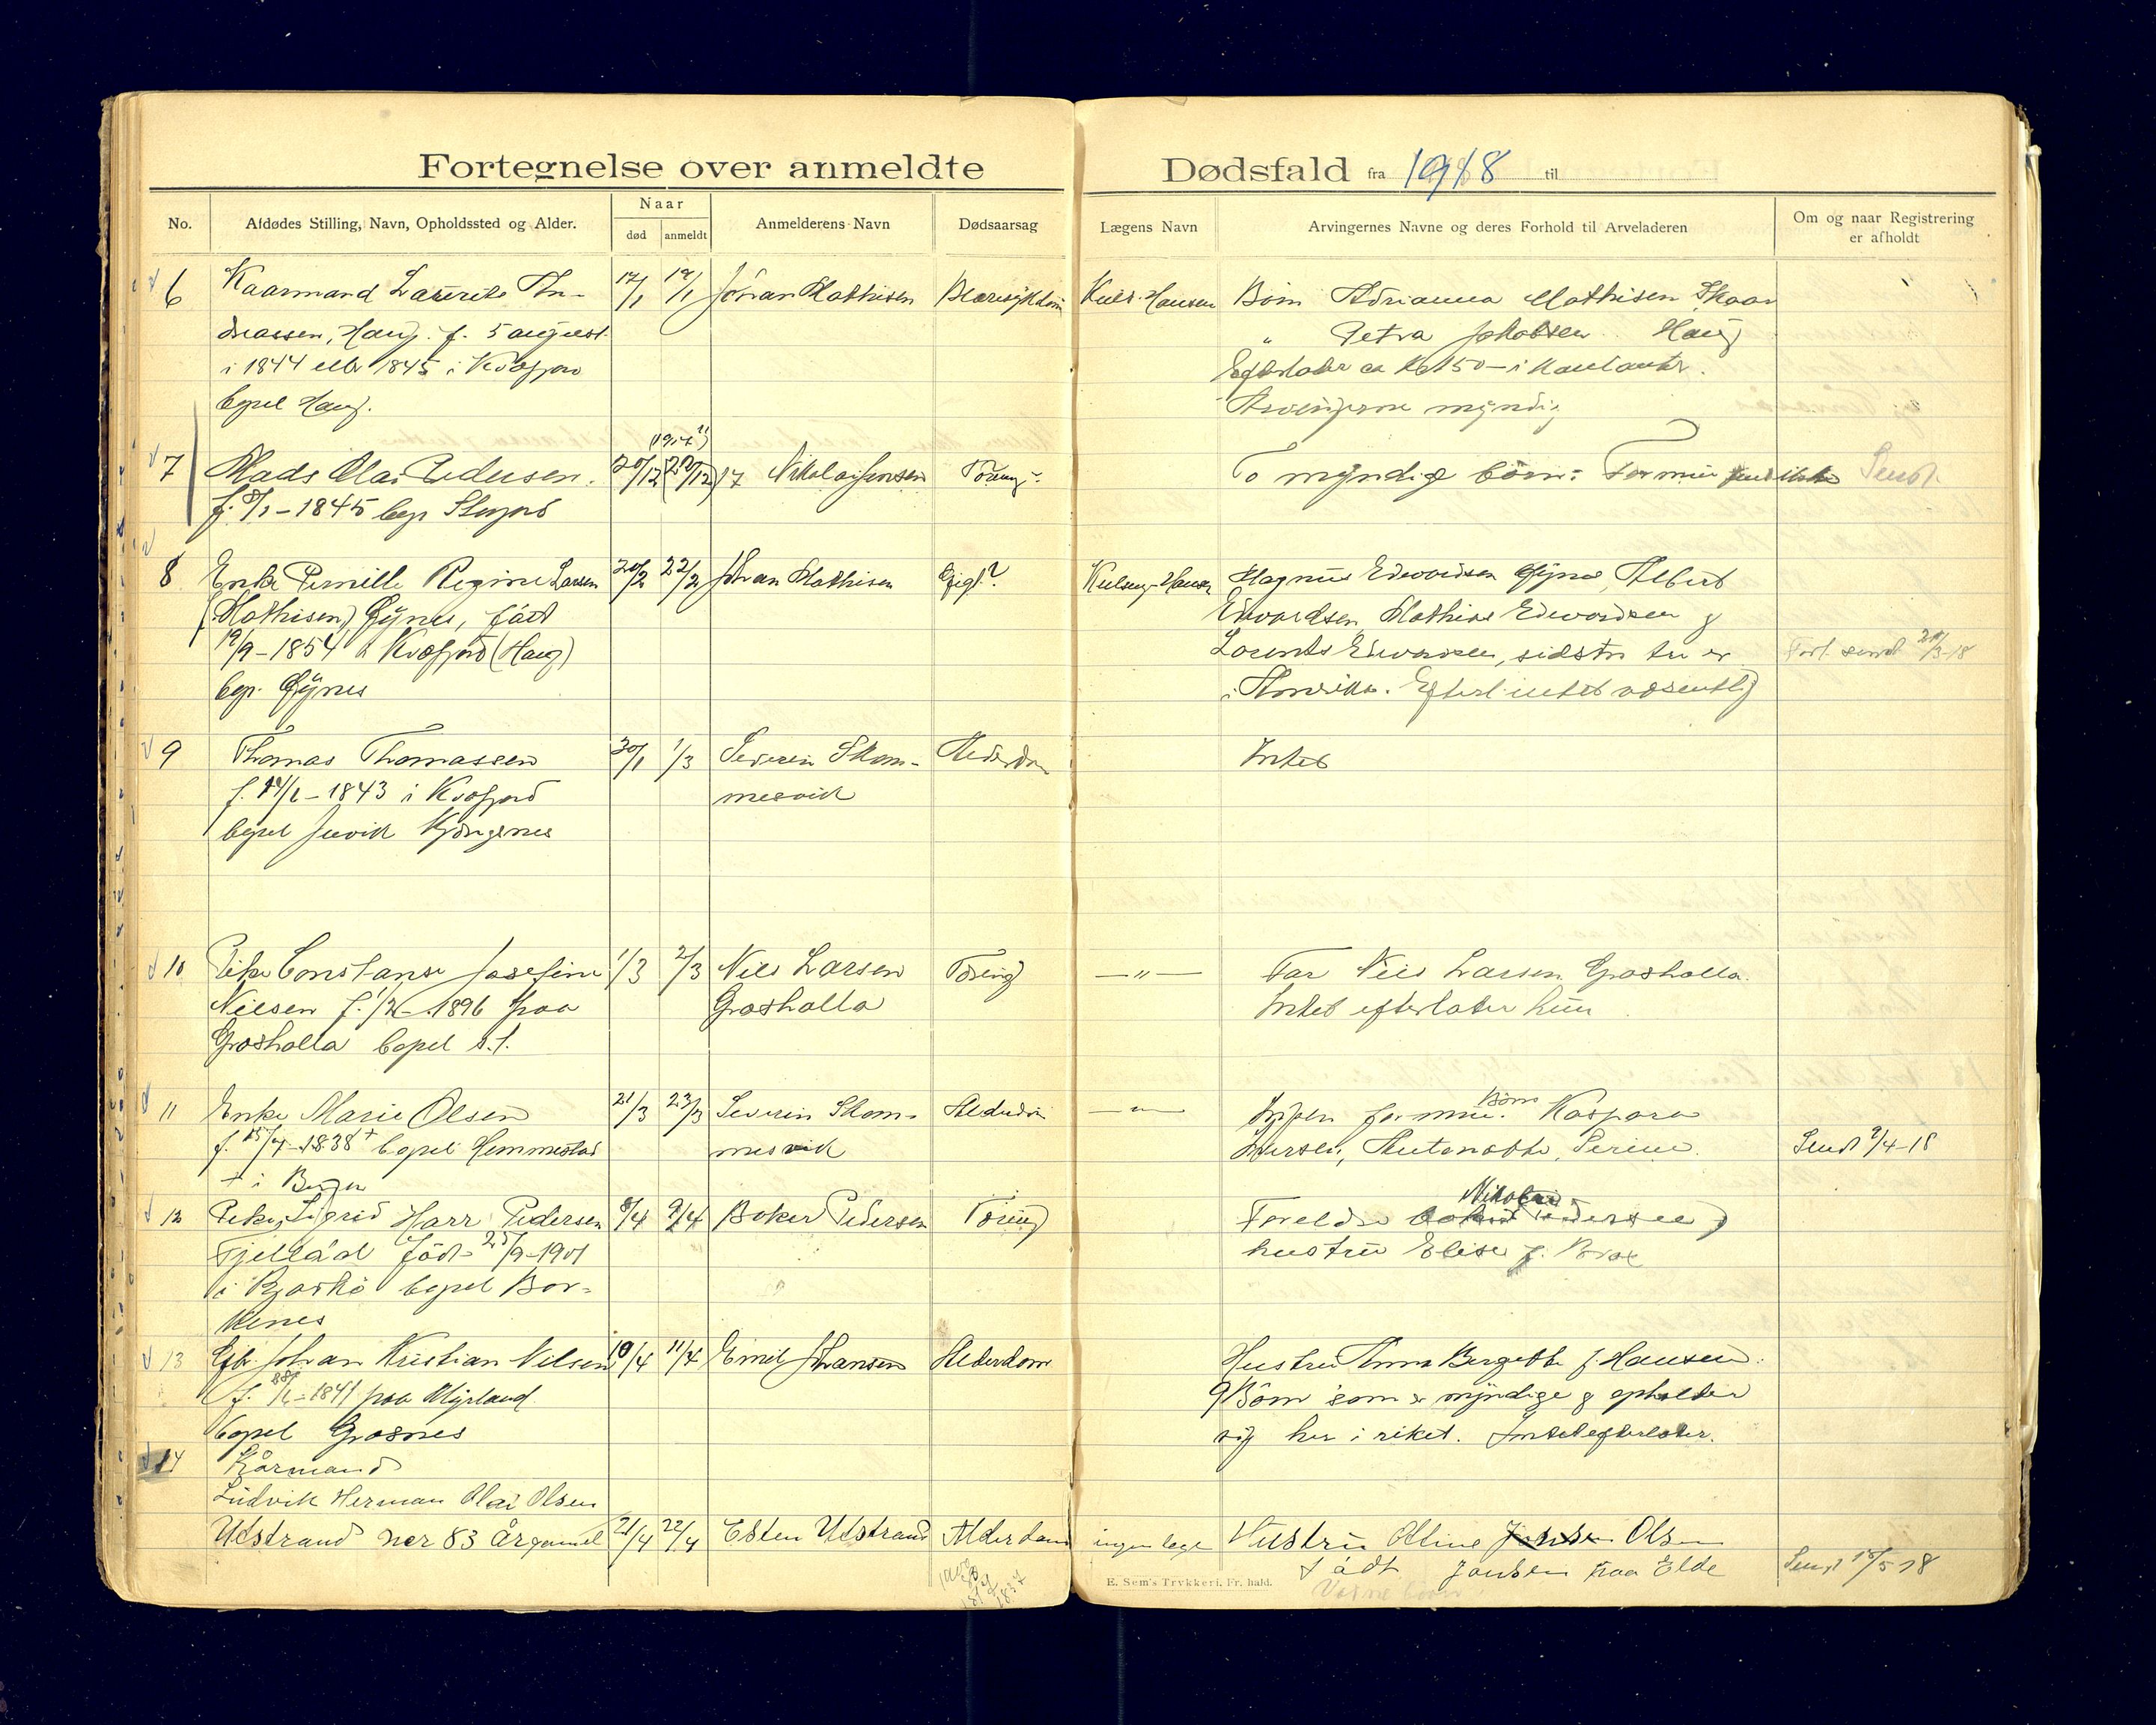 Fortegnelse over anmeldte Dødsfald fra 1918 til
No. Afdødes Stilling, Navn, Opholdssted og Alder. Naar død anmeldt Anmelderens Navn Dødsaarsag Lægens Navn Arvingernes Navne og deres Forhold til Arveladeren Om og naar Registrering er afholdt
6 Kaarmand Laurits An- 17/1 19/1 Johan Mathisen Blæresykdom Børn Adrianna Mathisen Skaar
dreassen, Haug. f. 5 august " Petra Jakobsen Haug
i 1844 eller 1845 i Kvæfjord Efterlater ca Kr 150 - i
bopel Haug. Arvingerne myndig
7 Mads Olai Pedersen. 20/12 22/12 17 Nikolai Jensen Tæring To myndige børn: Formue Sendt
f. 8/1 - 1845 bop
8 Enke Pernille Regine Larsen 20/2 22/2 Johan Mathisen Gigt? Magnus Edvardsen Øynes, Albert
(Mathisen) Øynes, født Edvardsen Mathias Edvardsen g
19/9 - 1854 i Kvæfjord (Haug) Lorents Edvardsen, sidste tre er sendt 21/3 18
bop. Øynes i Amerika. Efterl intet væsentlig
9 Thomas Thomassen 30/1 1/3 Severin Skom- Alderdom Intet
- 1843 i Kvæfjord mesvik
bopel
10 Pike Constanse Josefine 1/3 2/3 Nils Larsen Tæring — " — Far Nils Larsen Grasholla.
Nilsen - 1896 paa Grasholla Intet efterlater hun
Grasholla bopel s. s.
11 Enke Marie Olsen 21/3 23/3 Severin Skom- Alderdom — " — Ingen formue. Børn Kaspara
f. 15/4 - 1838 + bopel Hemmestad mesvik Antonette, Serine. Sendt 2/4-18
+ i Bergen
12 Pike, Sigrid Harr Pedersen 8/4 9/4 Boker Pedersen Tæring Foreldre Nikolai Pedersen g
Fjelldal født 25/9 - 1901 hustru Elise f.
i Bjarkö bopel Bor-
kenes
13 Gbr. Johan Kristian Nilsen 10/4 11/4 Emil Johansen Alderdom Hustru Anna Bergette f Hansen.
- 1841 paa Myrland 9 Børn som er myndige g opholder
bopel Grasnes sig her i riket. Intet efterlater.
14 Kårmand
Ludvik Herman Olai Olsen
Utstrand ner 83 År gamel 21/4 22/4 Esten Utstrand Alderdom ingen lege Hustru Oline Jensen Olsen
født Jensen fraa Elde Sendt 15/5 18
E. Sem's Trykkeri, Fr. hald.
1837